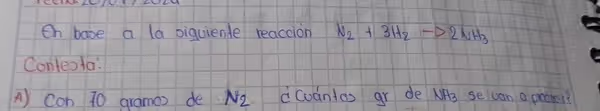 En base a la siguiente reacción N₂ + 3H₂ → 2NH₃
Contesta:
A) Con 70 gramos de N₂ ¿Cuántos gr de NH₃ se van a